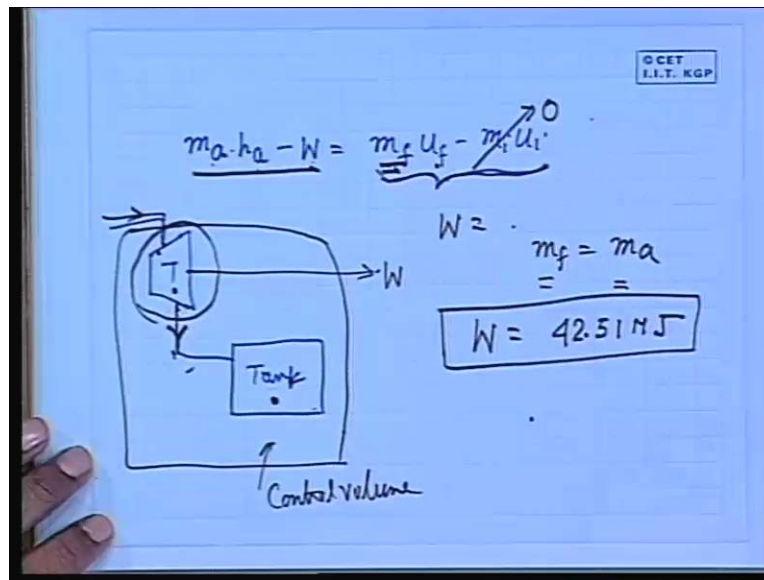 © CET
I.I.T. KGP
mₐ·hₐ – W = m_f u_f – mᵢ uᵢ 0
W =
m_f = mₐ
= =
W = 42.51 MJ
T
W
Tank
Control volume